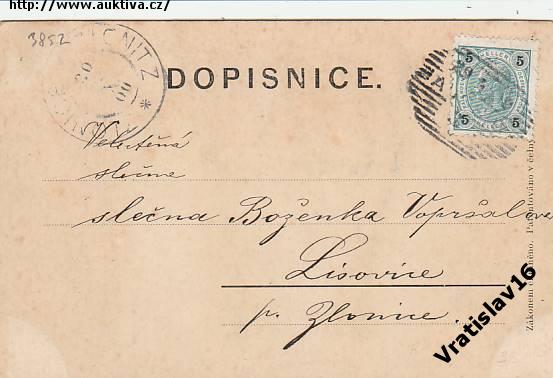 http://www.auktiva.cz/
3852
DOPISNICE.
5 5
5 5
Velectěná
slečna
slečna Boženka Vopršalova
Lisovice
p. Zlonice.
Zákonem chráněno. Patentováno v čelný
Vratislav16